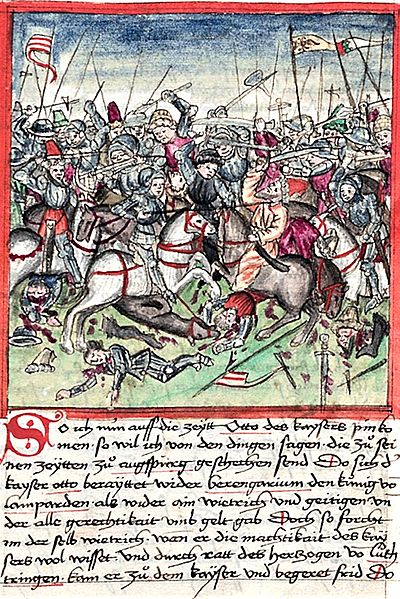 So ich nun auff die zeytt Otto des kaysers pin ko
men · so wil ich von den dingen sagen · die zů sei
nen zeÿtten zů augspurg geschechen send Do sich d
kayser otto beraÿttet wider berengarium den künig vo
lamparden · als wider ain wietrich und geitigen vn
der alle gerechtikait umb gelt gab Doch so forcht
im der selb wietrich · wan er die machtikait des kaÿ
sers wol wisset · und durch ratt des herczogen vo luth
tringen · kam er zů dem kaÿser und begeret frid Do